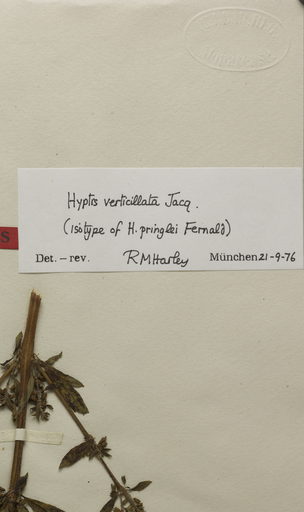 Hyptis verticillata Jacq.
(isotype of H. pringlei Fernald)
S
Det. – rev. RMHarley München 21-9-76